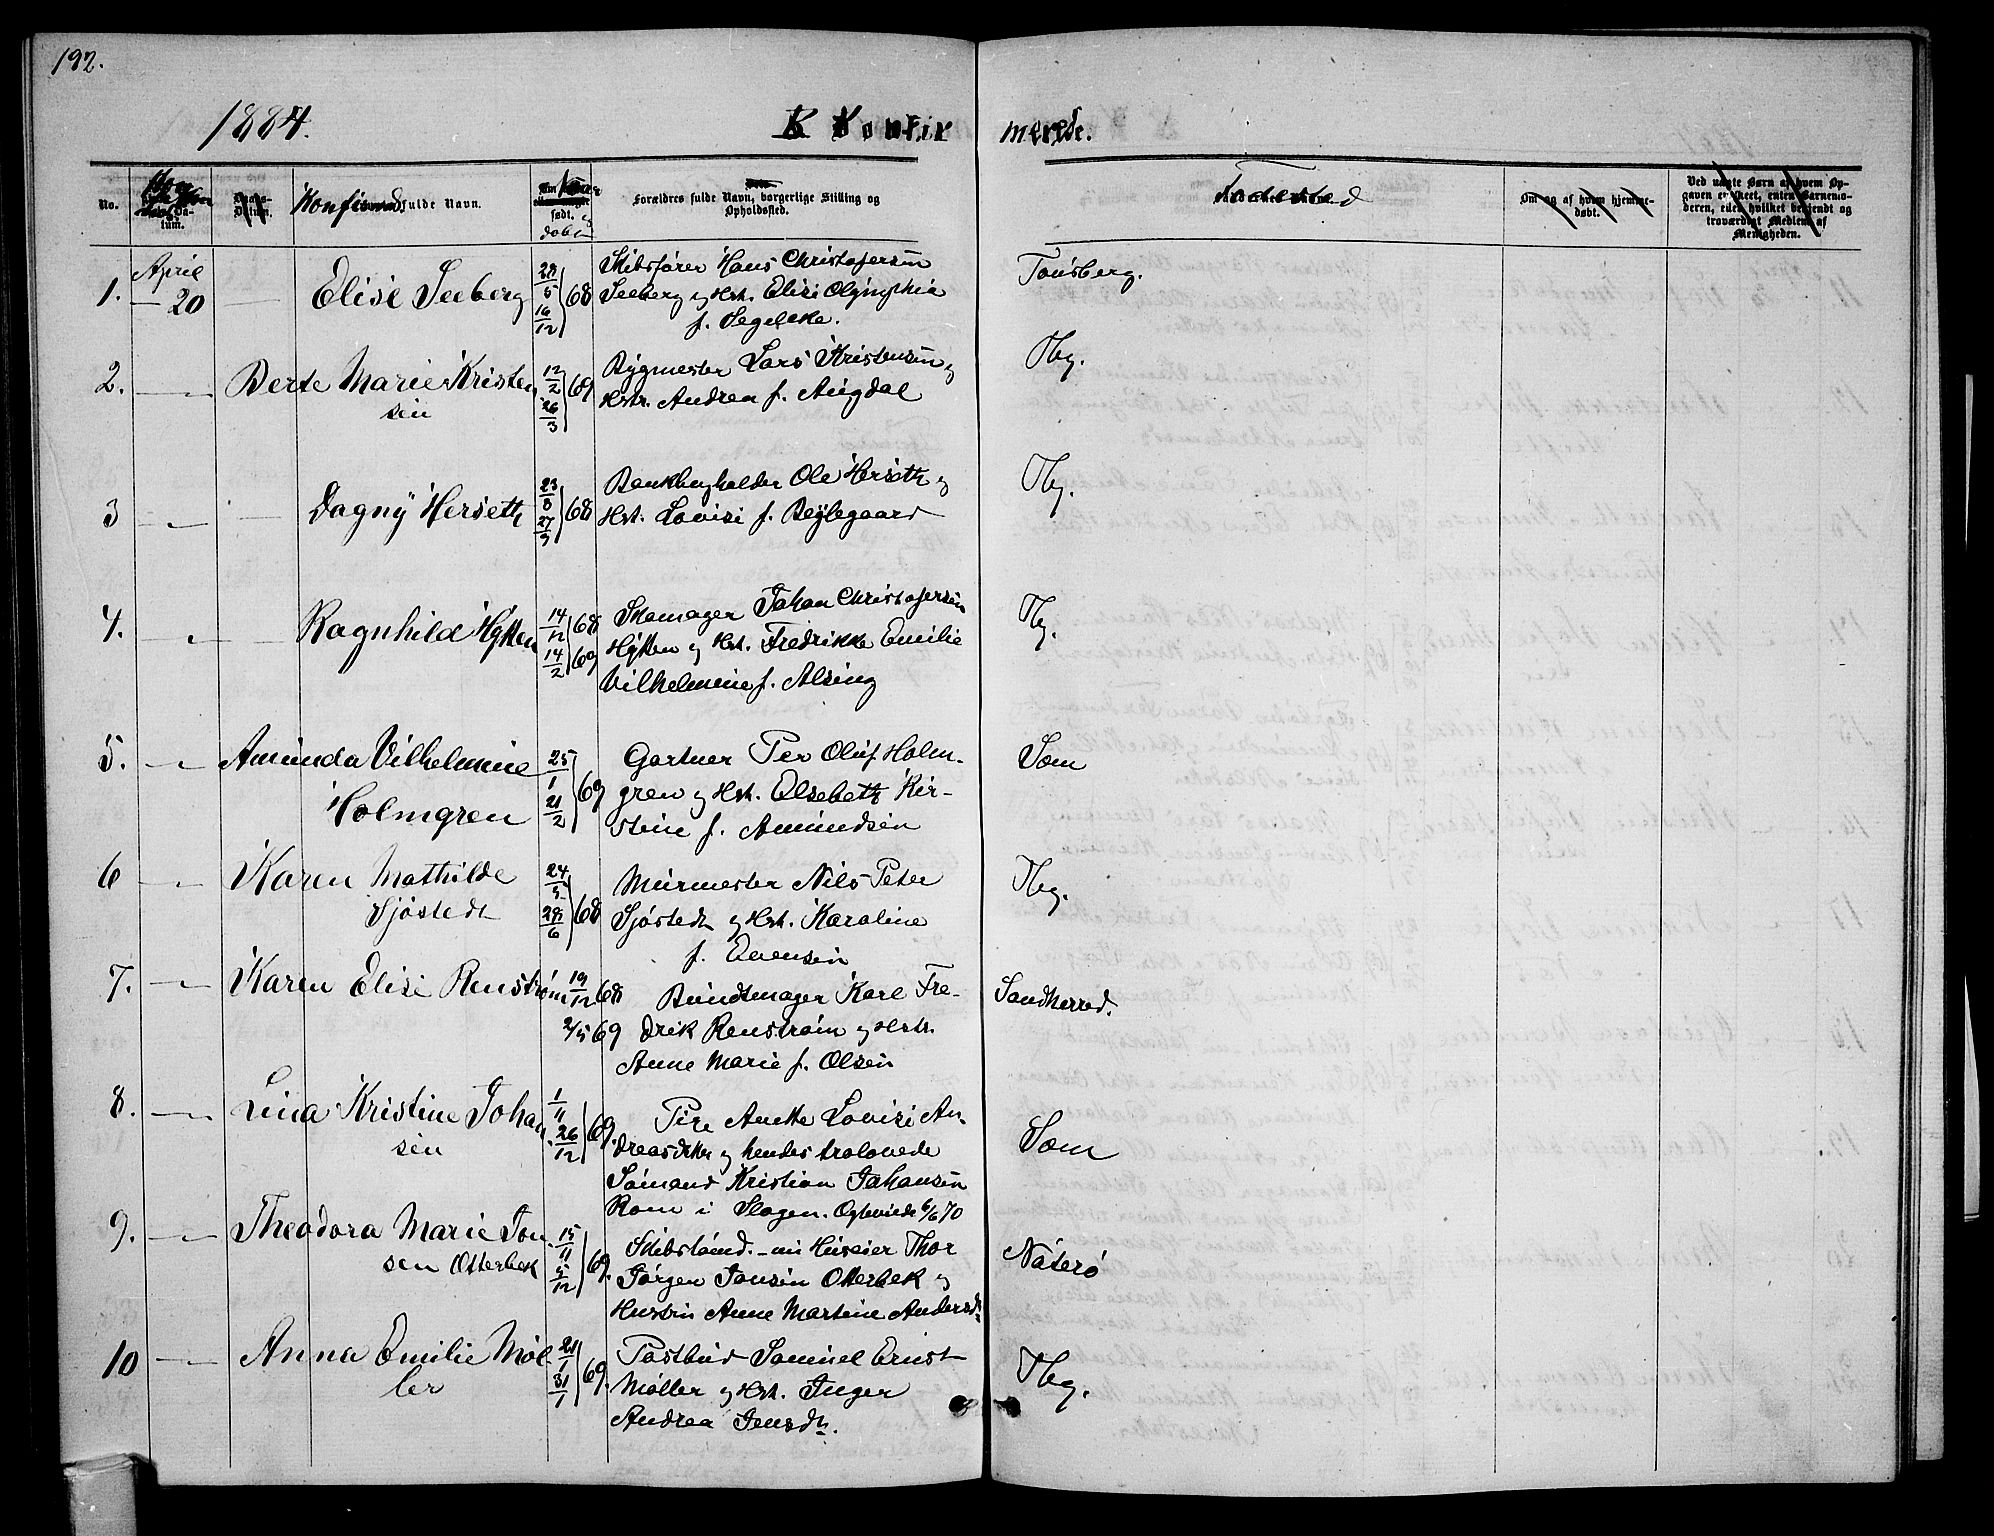 192.
1884.
K Konfirmerede.
No.
Konfirmand fulde Navn.
født.
døbt
Forældres fulde Navn, borgerlige Stilling og
Opholdssted.
Fødested
Om og af hvem hjemme-
døbt.
Ved uægte Børn af hvem Op-
gaven er skeet, enten Barnemo-
deren, eller hvilket bekjendt og
troværdigt Medlem af
Menigheden.
April
1. — 20 — Elise Seeberg 28/5 16/12 68 Skibsfører Hans Christofersen Tønsberg.
Seeberg og Hst. Elise Olymphia
f. Segelcke.
2. — Berte Marie Kristen 12/2 26/3 69 Bygmester Lars Kristensen og Tbg.
sen Hstr. Andrea f. Augdal
3 — Dagny Herseth 23/8 27/9 68 Bankbogholder Ole Herseth og Tbg.
Hst. Lovise f. Bejlegaard
4. — Ragnhild Hytten 14/12 68 14/2 69 Skomager Johan Christofersen Tbg.
Hytten og Hst. Fredrikke Emilie
Vilhelmine f. Alsing
5. — Amunda Vilhelmine 25/1 21/2 69 Gartner Per Oluf Holm- Sem
Holmgren gren og Hst. Elsebeth Kir-
stine f. Amundsen
6 — Karen Mathilde 24/5 28/6 68 Murmester Nils Peter Tbg.
Sjøstedt Sjøstedt og Hst. Karoline
f. Evensen
7. — Karen Elise Renstrøm 19/12 68 Bundtmager Karl Fre- Sandherred.
2/5 69 drik Renstrøm og Hstr.
Anne Marie f. Olsen
8. — Lina Kristine Johan 1/11 26/12 69. Pige Anette Lovise An- Sem
sen dreasdtter og hendes trolovede
Sømand Kristian Johansen
Rom i Slagen. Egteviede 6/6 70
9. — Theodora Marie Jon 15/11 5/12 69. Skibstømd. - nu Huseier Thor Nøterø
sen Otterbek Jørgen Jonsen Otterbek og
Hustru Anne Martine Andersdt.
10 — Anna Emilie Møl 21/1 31/1 69. Postbud Samuel Ernst Tbg.
ler Møller og Hst. Inger
Andrea Jensdt.